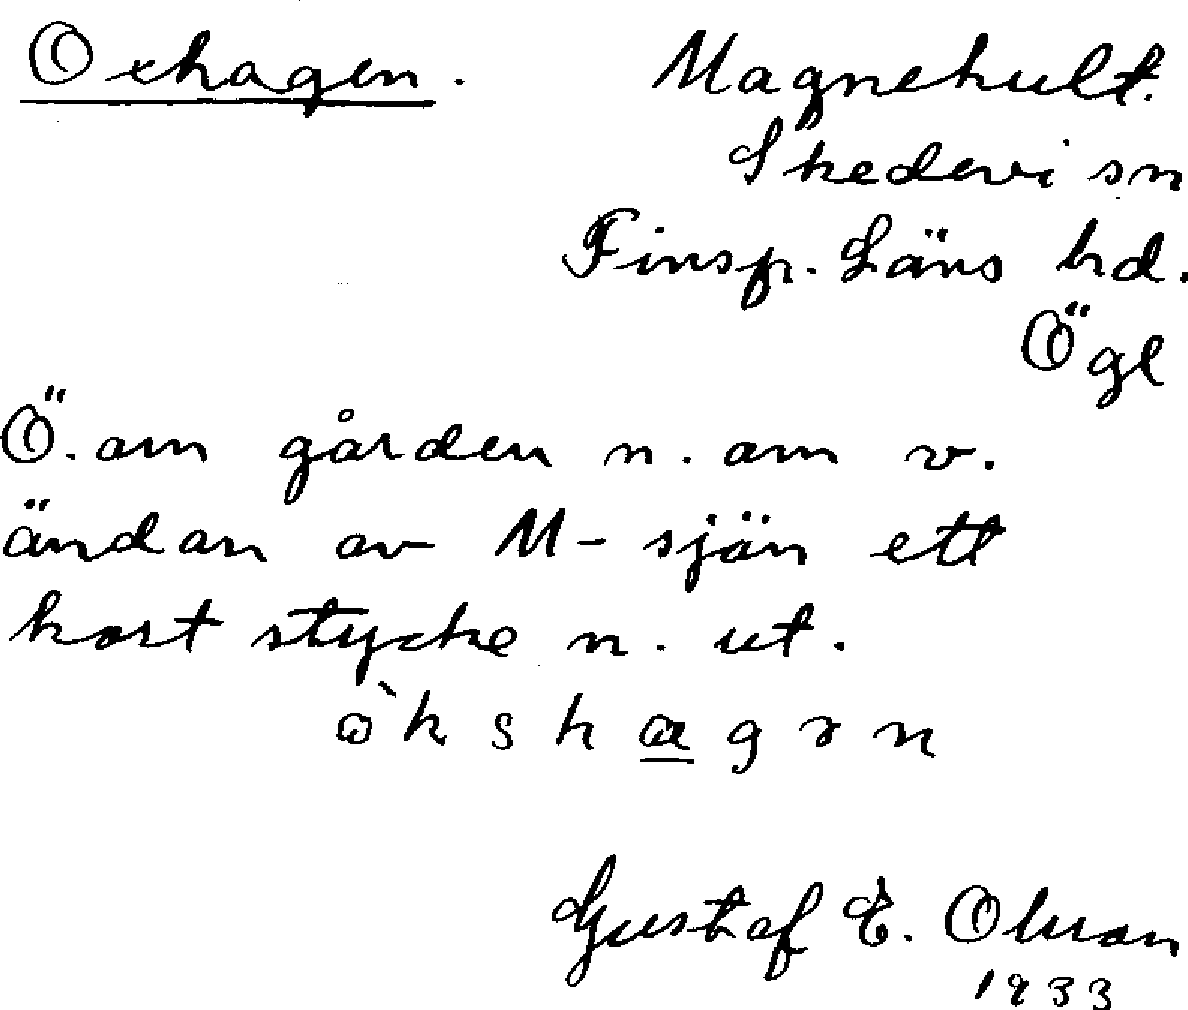 Oxhagen. Magnehult.
Skedevi sn
Finsp. Läns hd.
Ögl
Ö. om gården n. om v.
ändan av M-sjön ett
kort stycke n. ut.
òkshagən
Gustaf E. Olsson
1933